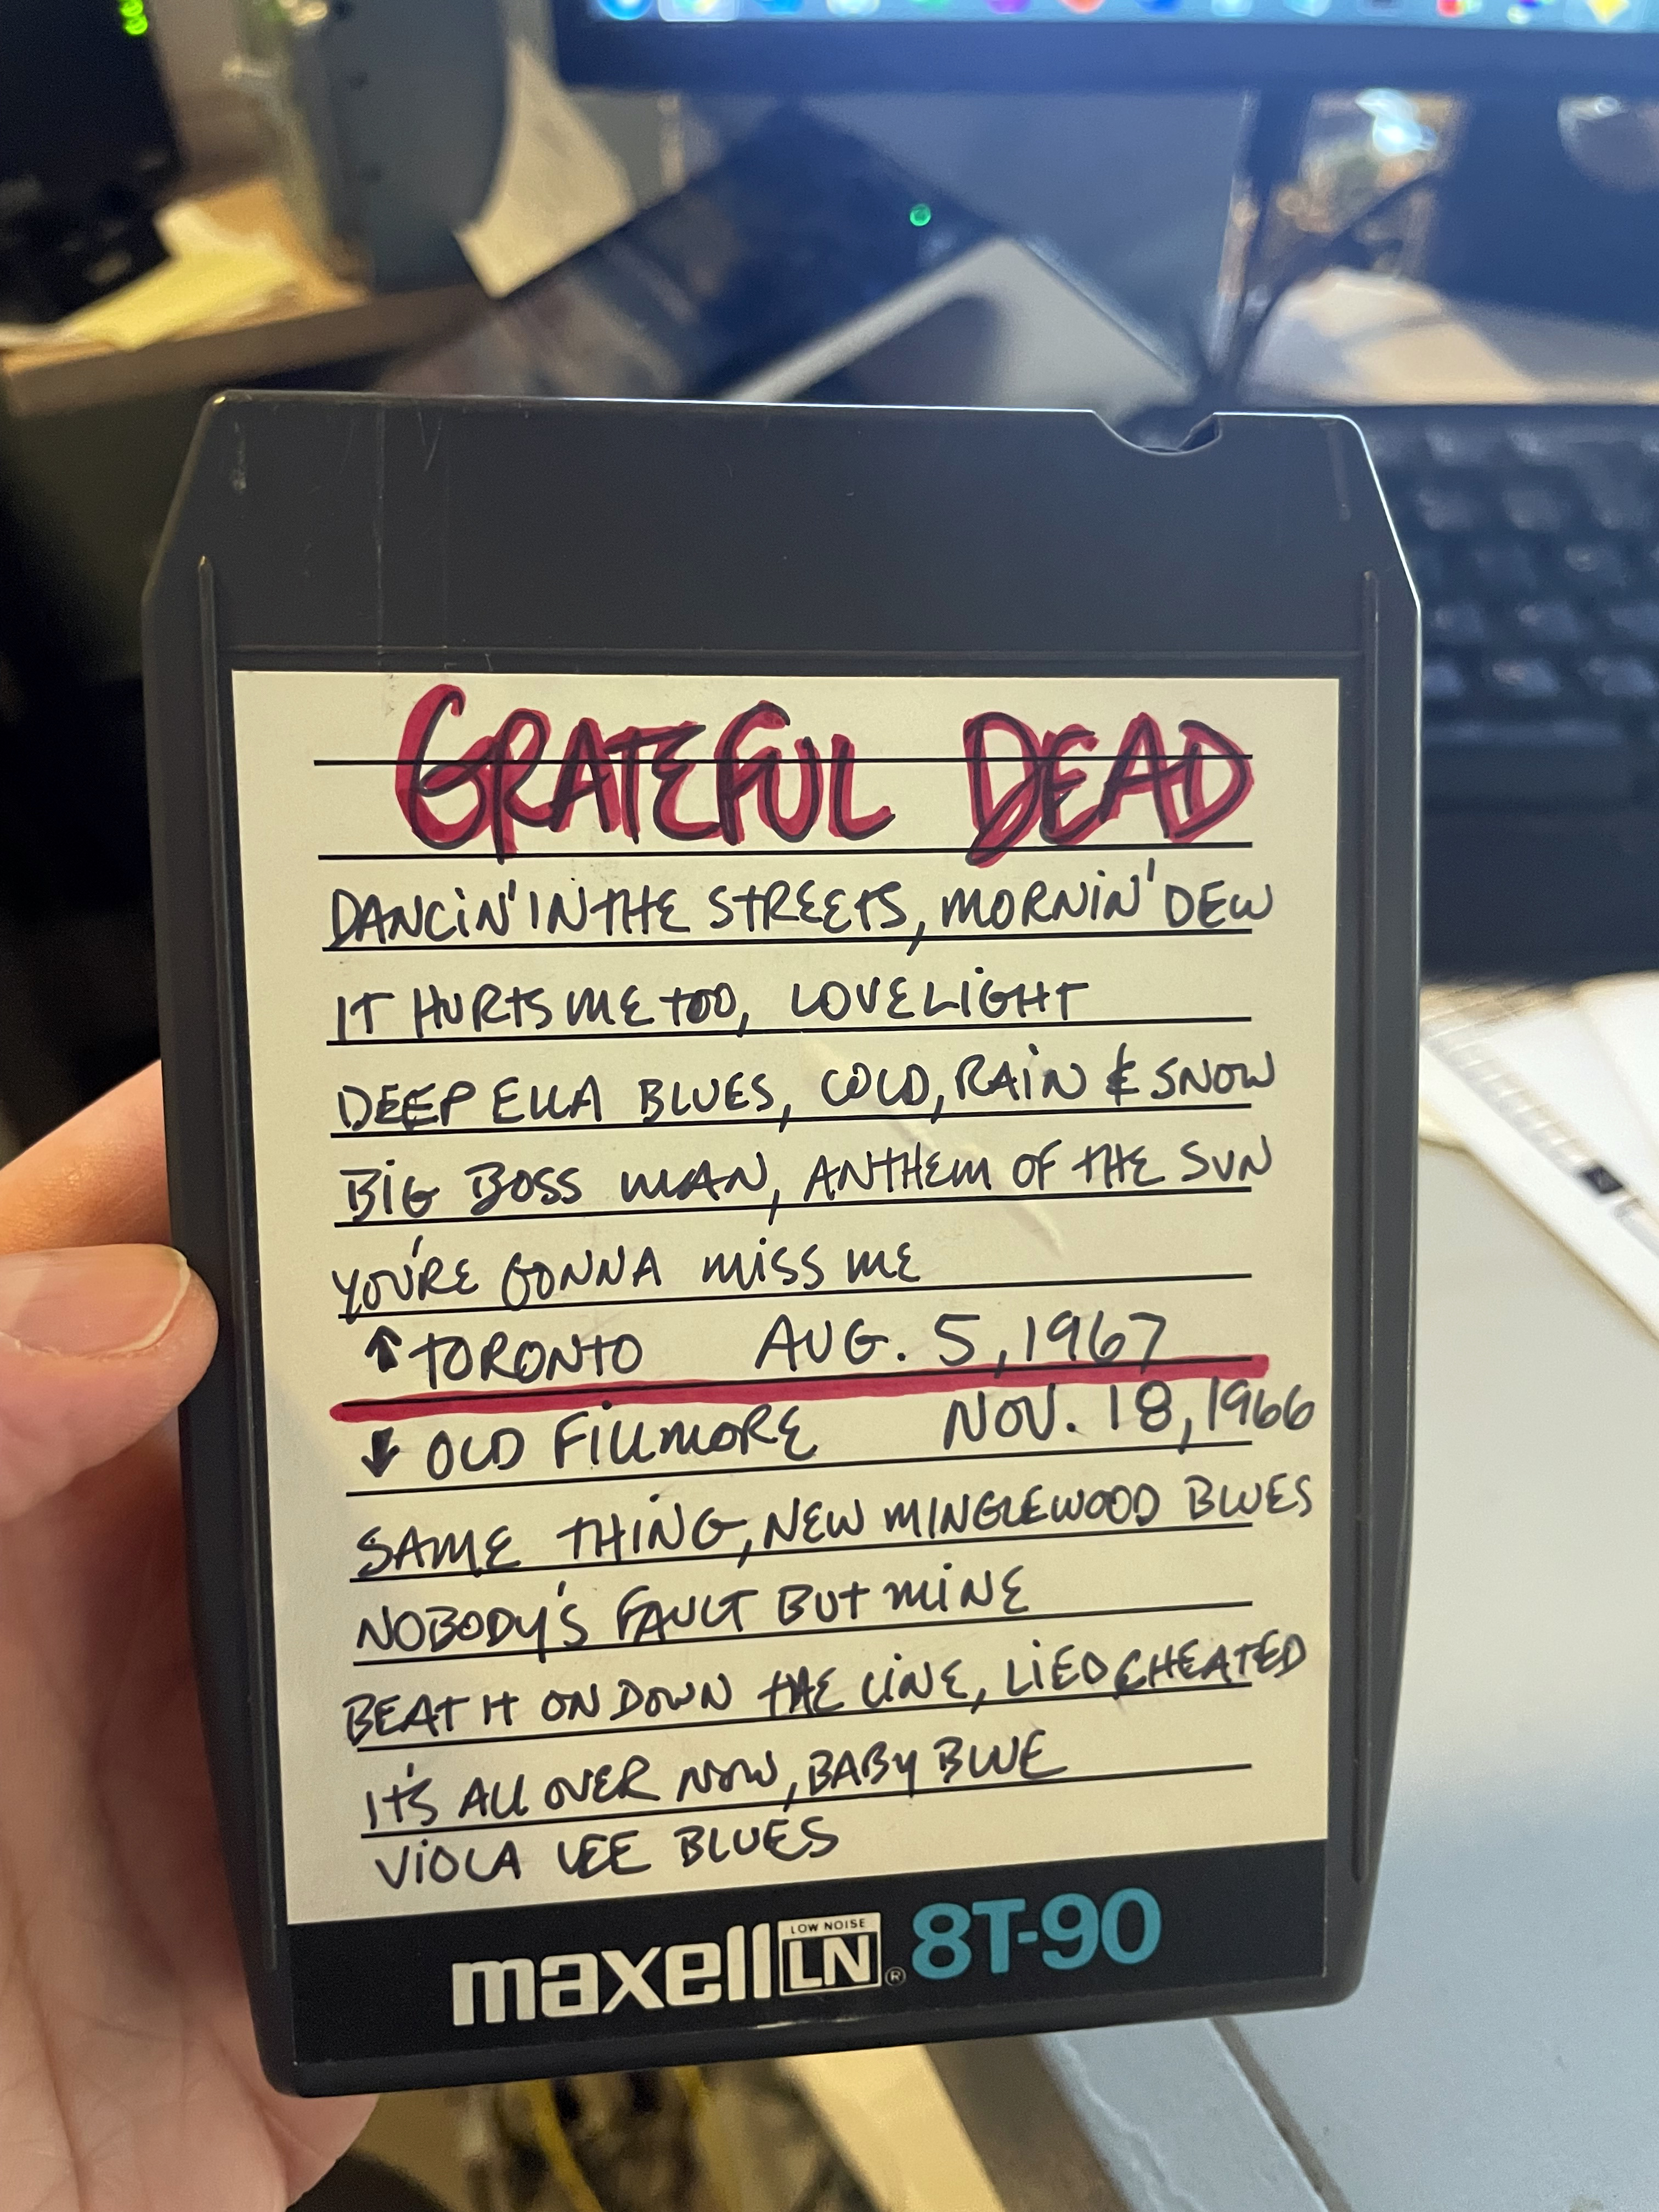 GRATEFUL DEAD
DANCIN' IN THE STREETS, MORNIN' DEW
IT HURTS ME TOO, LOVELIGHT
DEEP ELLA BLUES, COLD, RAIN & SNOW
BIG BOSS MAN, ANTHEM OF THE SUN
YOU'RE GONNA MISS ME
↑ TORONTO AUG. 5, 1967
↓ OLD FILLMORE NOV. 18, 1966
SAME THING, NEW MINGLEWOOD BLUES
NOBODY'S FAULT BUT MINE
BEAT IT ON DOWN THE LINE, LIED & CHEATED
IT'S ALL OVER NOW, BABY BLUE
VIOLA LEE BLUES
maxell LOW NOISE LN ® 8T-90